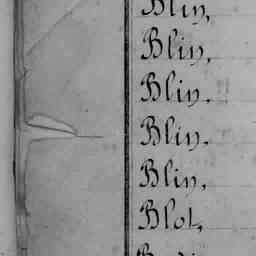 Blin,
Blin,
Blin.
Blin.
Blin,
Blot,